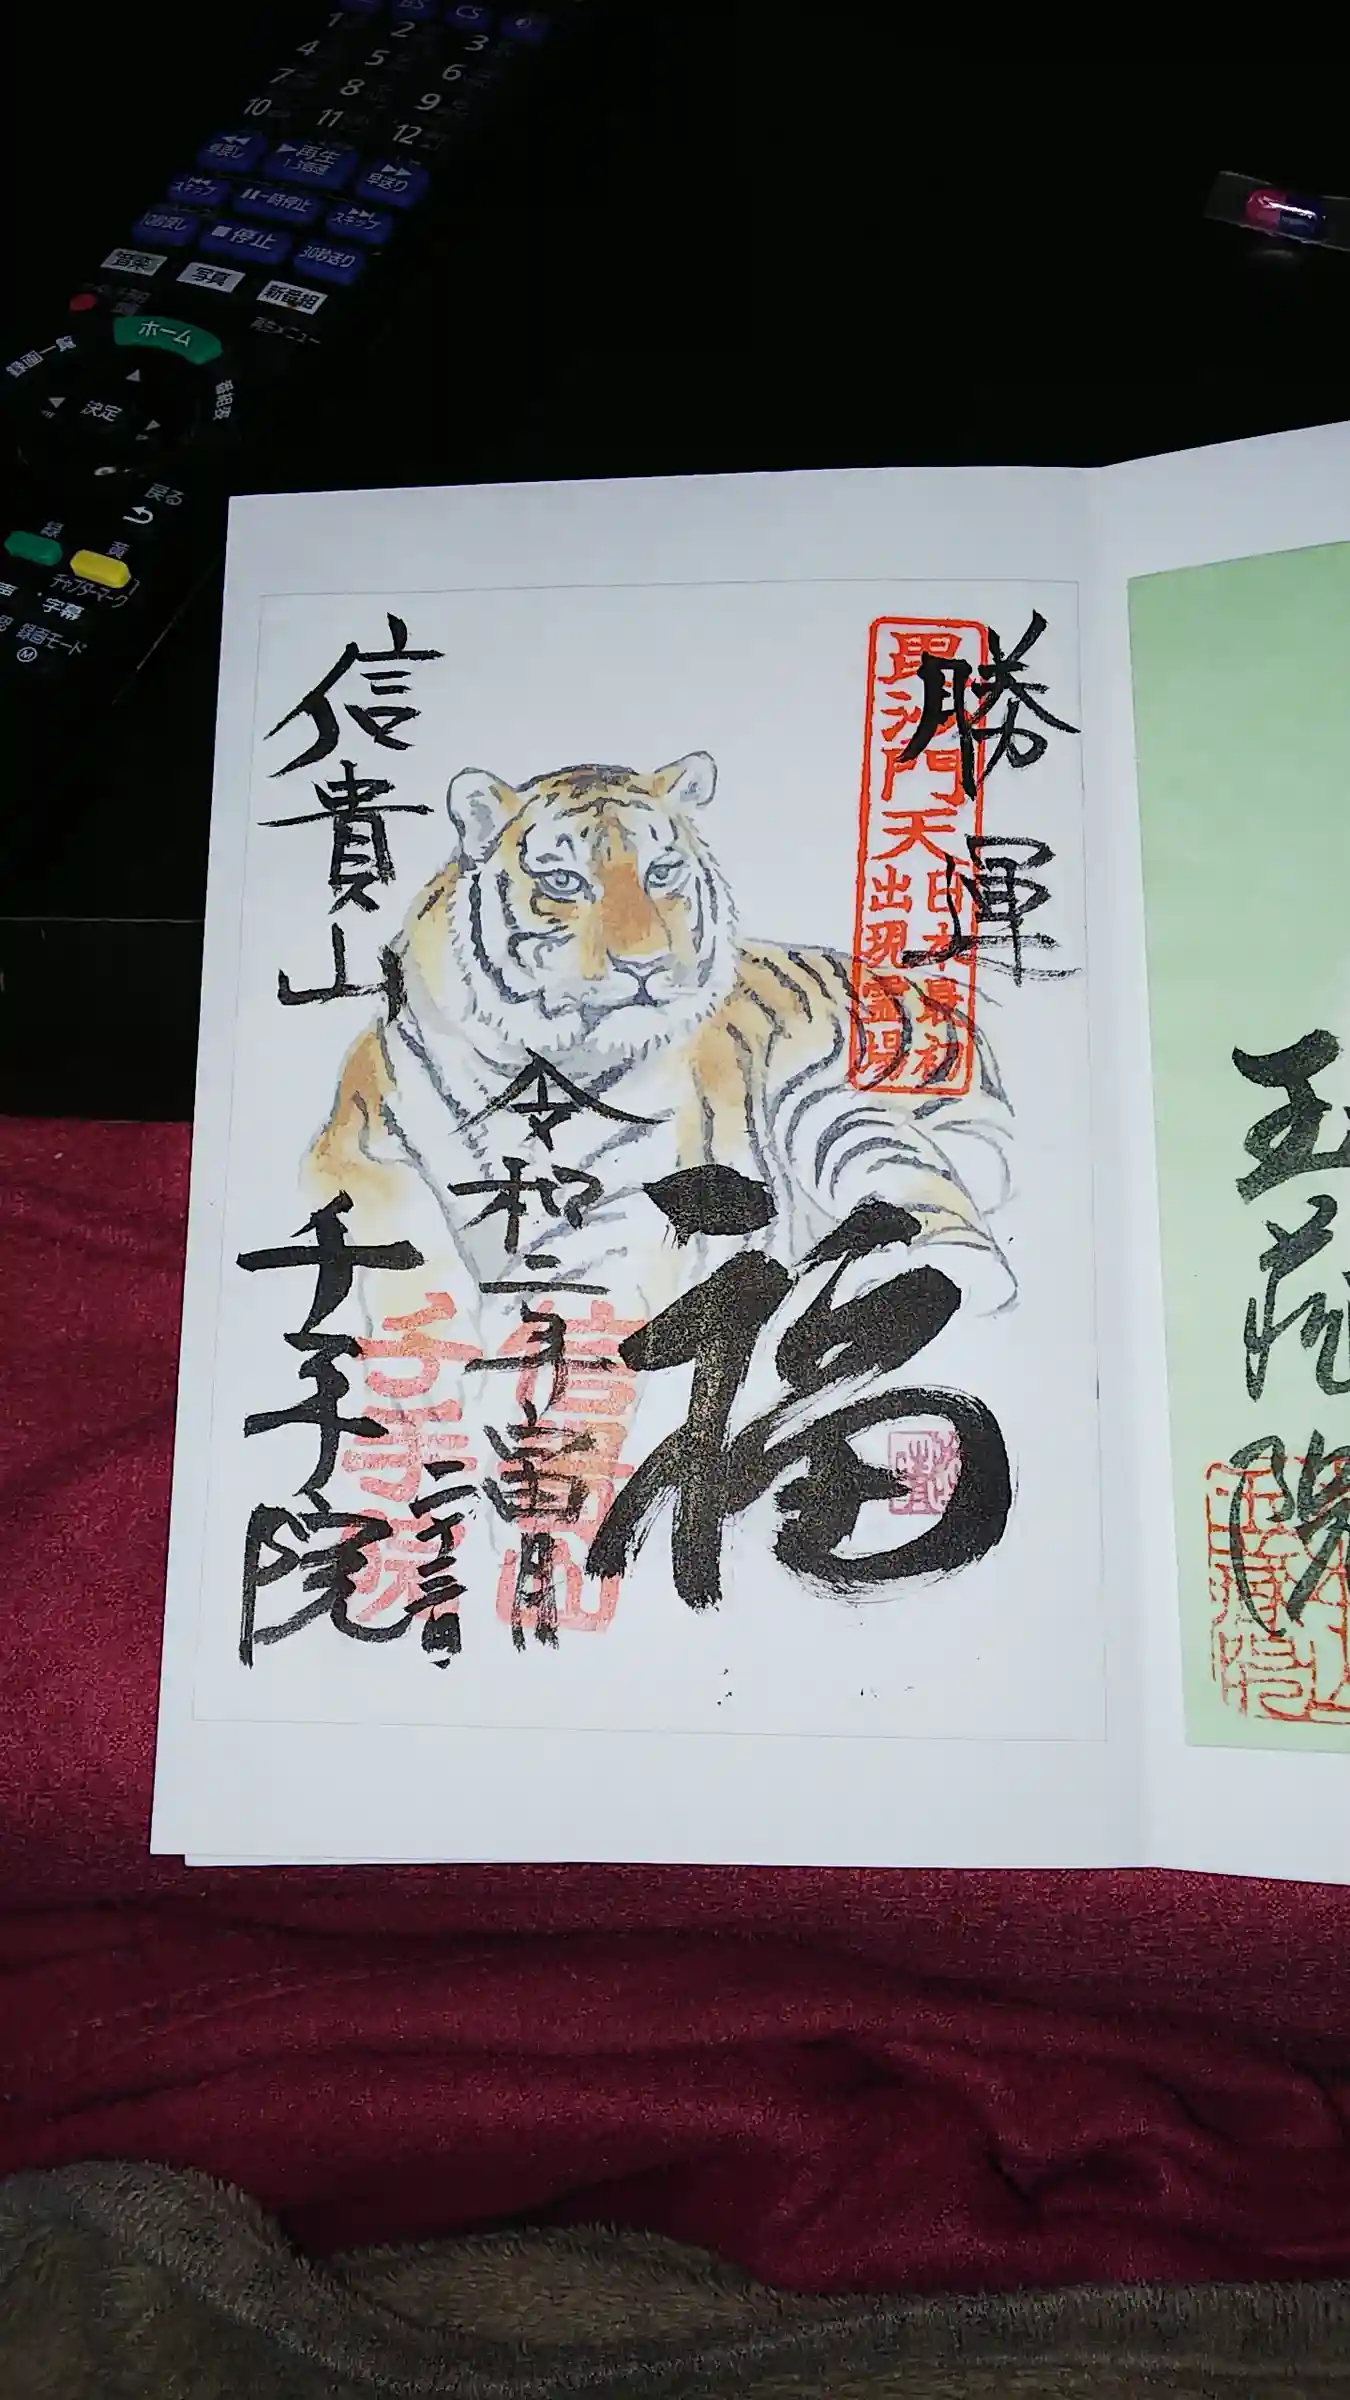 BS
CS
1
2
3
4
5
6
7
8
9
10
11
12
再生
1.3倍速
早送り
スキップ
一時停止
スキップ
停止
30秒送り
音楽
写真
新番組
ホーム
録画一覧
番組表
決定
戻る
緑
黄
チャプターマーク
字幕
録画モード
勝運
毘沙門天
日本最初
出現霊場
福
令和二年
月
二十三日
信貴山
信貴山
千手院
千手院
玉蔵院
玉蔵院